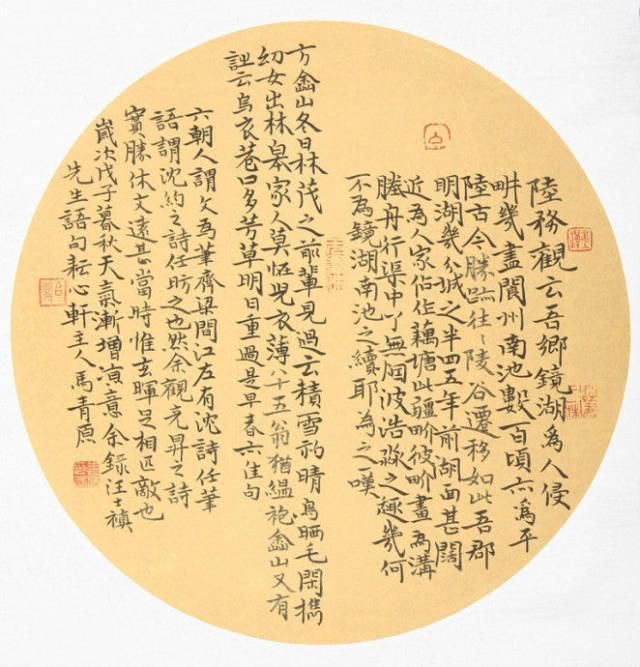 陸務觀云吾鄉鏡湖為人侵
畊幾盡閬州南池數百頃亦為平
陸古今勝蹟往々陵谷遷移如此吾郡
明湖幾分城之半四五年前湖面甚闊
近為人家佔作藕塘此疆畍彼畍畫為溝
塍舟行渠中了無烟波浩淼之趣幾何
不為鏡湖南池之續耶為之一嘆
方嵞山冬日林茂之前輩見過云積雪初晴鳥晒毛閑攜
幼女出林皋家人莫恠兒衣薄八十五翁猶縕袍嵞山又有
云烏衣巷口多芳草明日重過是早春亦佳句
六朝人謂文為筆齊梁間江左有沈詩任筆
語謂沈約之詩任昉之也然余觀彥昇之詩
實勝休文遠甚當時惟玄暉足相匹敵也
歲次戊子暮秋天氣漸增涼意余錄汪士禛
先生語句耘心軒主人馬青原